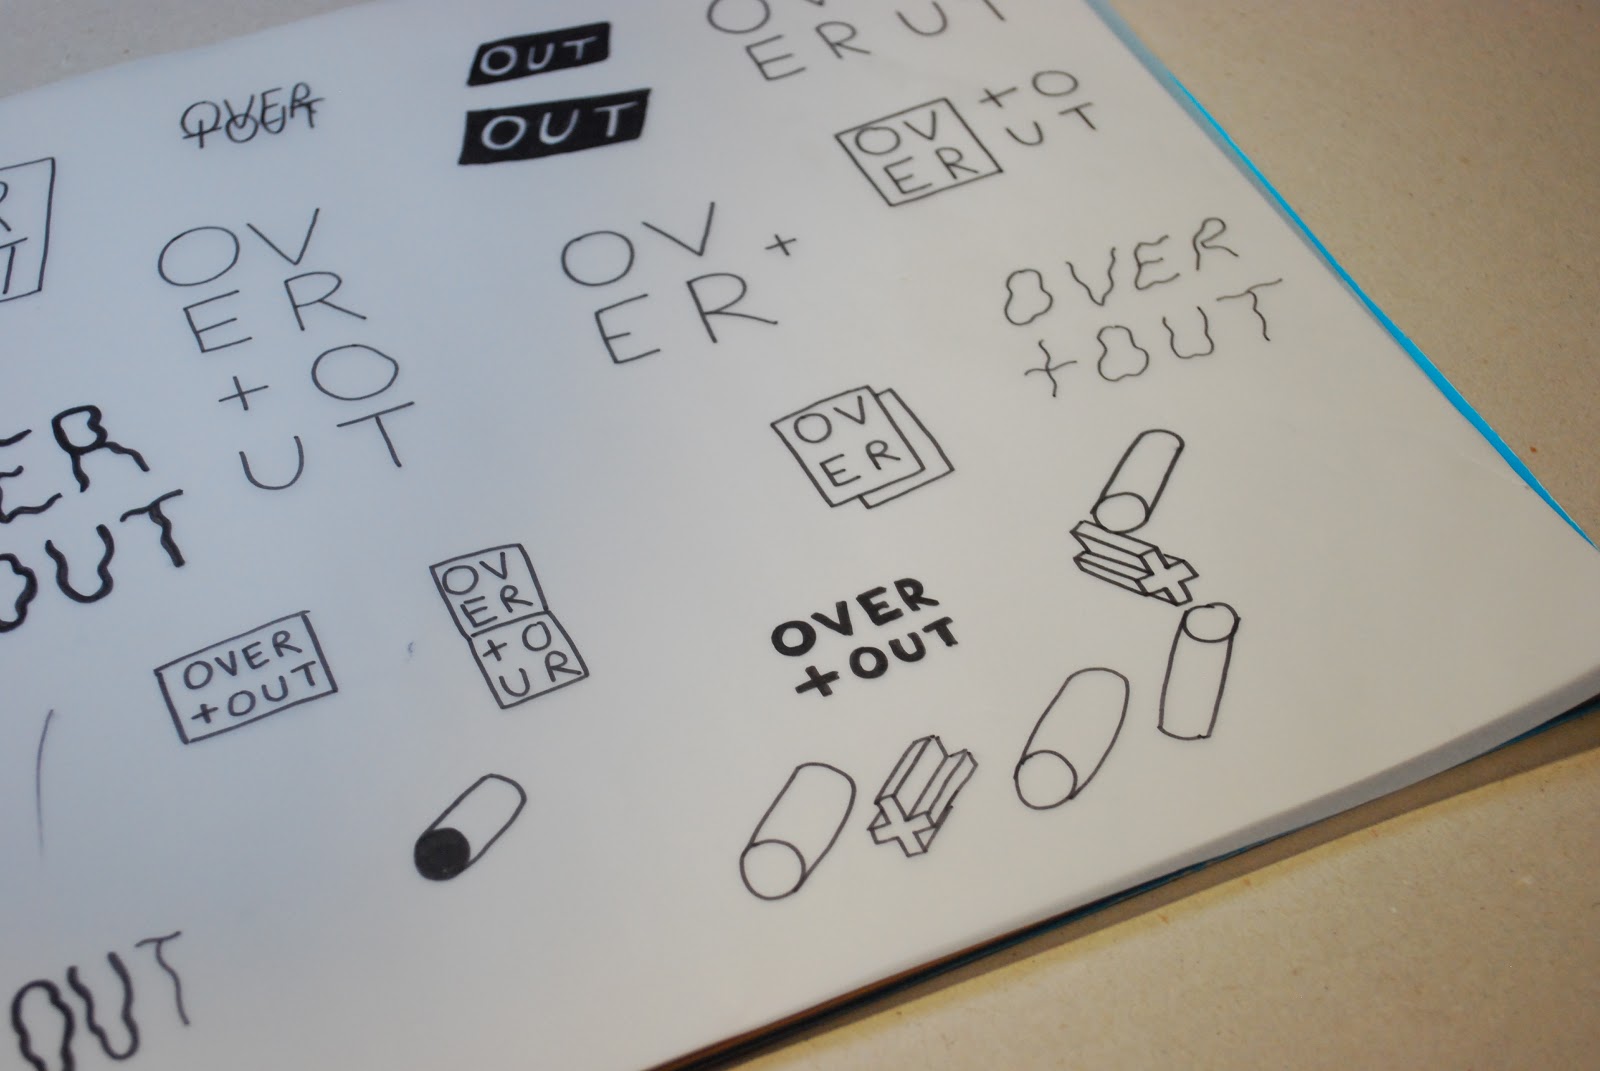 OVER
+OUT
OUT
OUT
OV
ER UT
OV +O
ER UT
R
T
OV
ER
+O
UT
OV +
ER
OVER
+OUT
ER
OUT
OV
ER
OV
ER
+O
UR
OVER
+OUT
OVER
+OUT
OUT